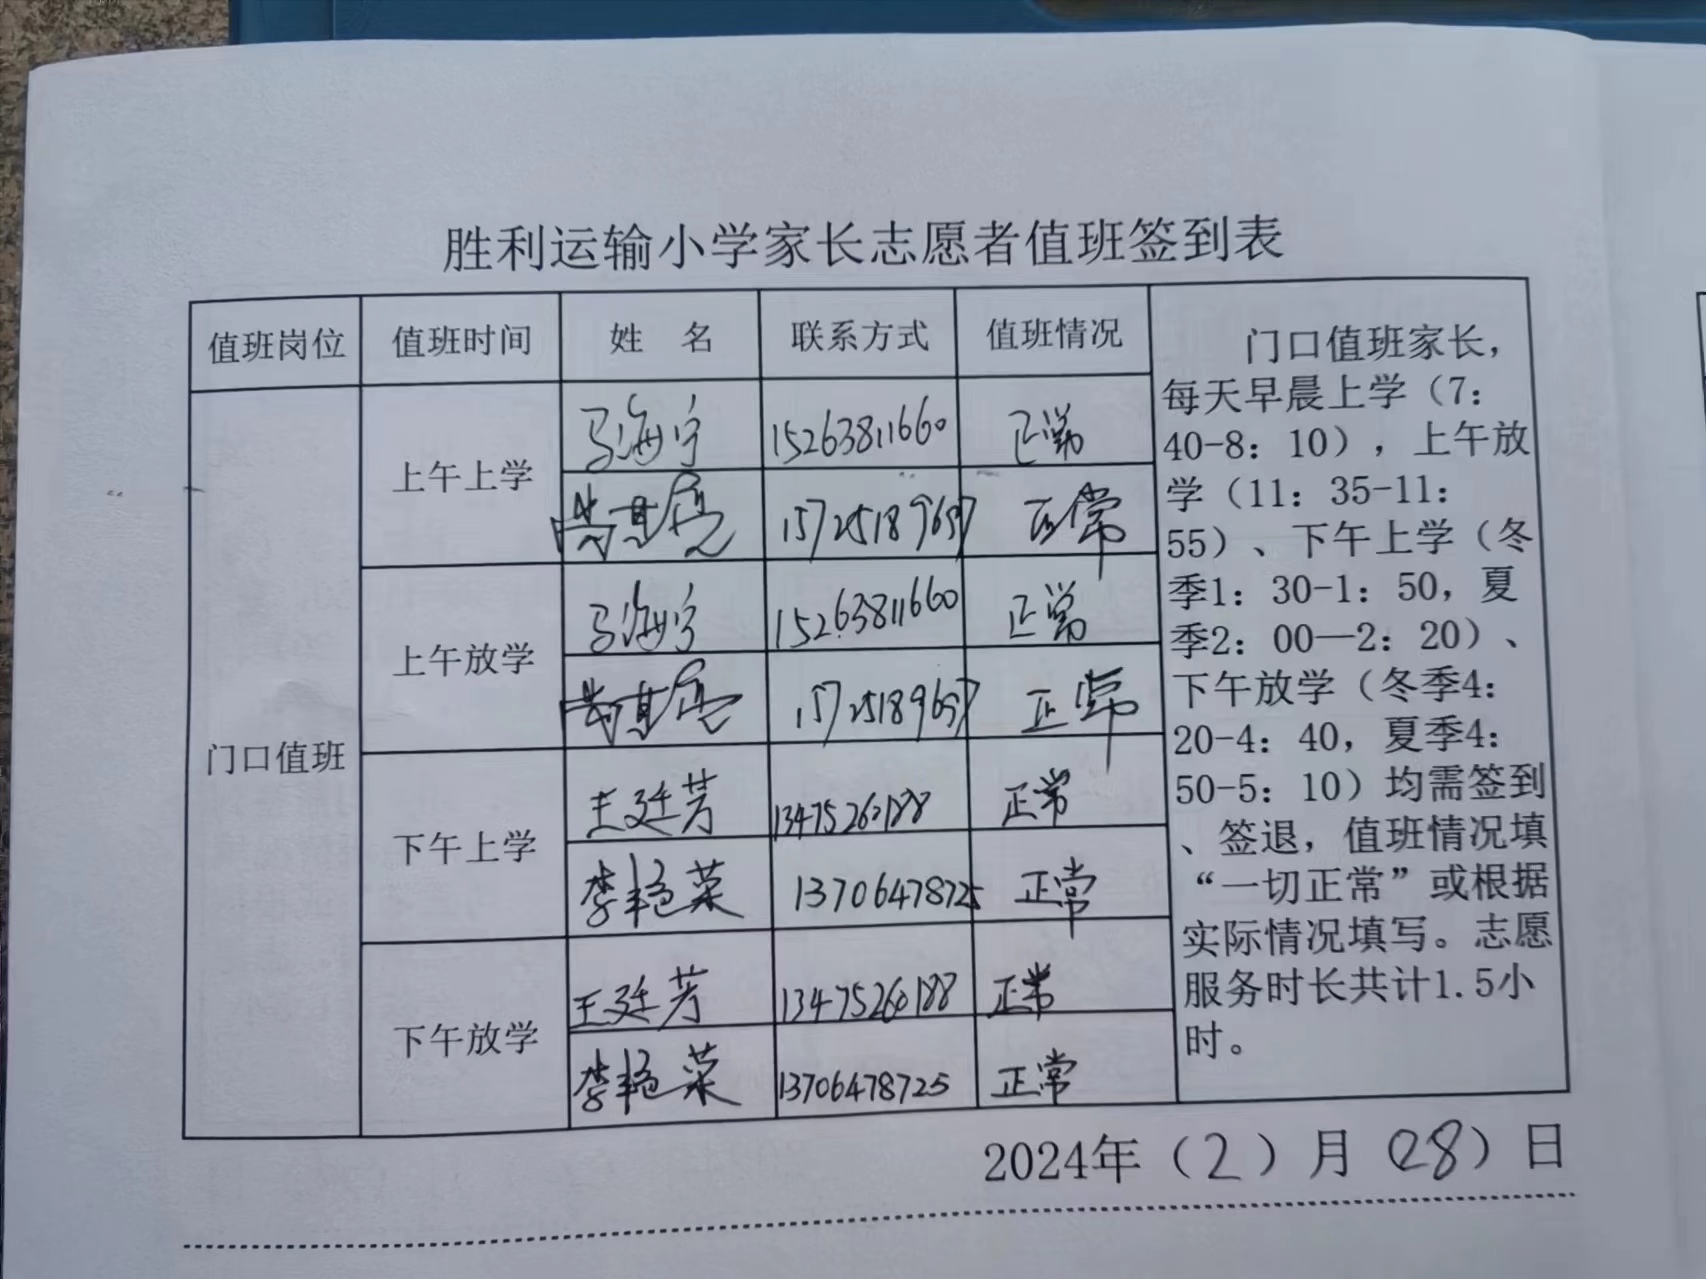 胜利运输小学家长志愿者值班签到表
值班岗位 值班时间 姓 名 联系方式 值班情况
门口值班
上午上学
马海宁 15263811660 正常
15725189657 正常
上午放学
马海宁 15263811660 正常
15725189657 正常
下午上学
王廷芳 13475260188 正常
李艳菜 13706478725 正常
下午放学
王廷芳 13475260188 正常
李艳菜 13706478725 正常
门口值班家长，
每天早晨上学（7：
40-8：10），上午放
学（11：35-11：
55）、下午上学（冬
季1：30-1：50，夏
季2：00—2：20）、
下午放学（冬季4：
20-4：40，夏季4：
50-5：10）均需签到
、签退，值班情况填
“一切正常”或根据
实际情况填写。志愿
服务时长共计1.5小
时。
2024年（2）月（28）日